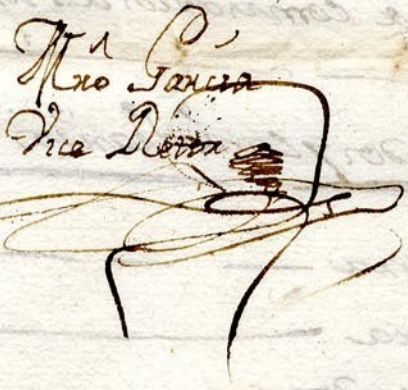 Mnº García
Vice Retor